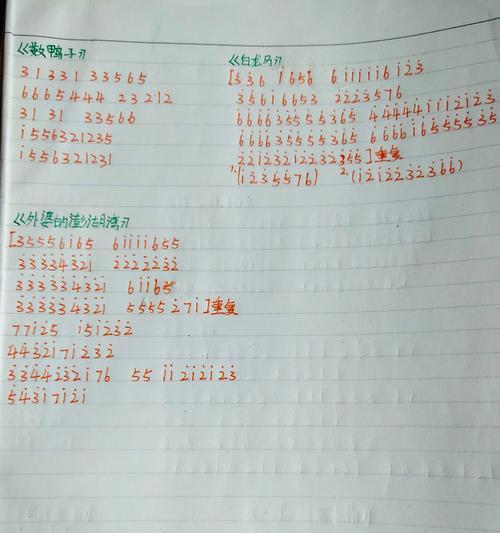 《数鸭子》
3 1 3 3 1  3 3 5 6 5
6 6 6 5 4 4 4  2 3 2 1 2
3 1  3 1  3 3 5 6 6
i 5 5 6 3 2 1 2 3 5
i 5 5 6 3 2 1 2 3 1
《白龙马》
[3̇ 3̇ 6  i 6 5 6  6 i i i i i 6 i 2̇ 3̇
3 5 6 i 6 6 5 3  2 2 2 3 5 7 6
6 6 6 6 3 5 5 5 5 3 6 5  4 4 4 4 4 i i i 2̇ i 2̇ 3̇
6 6 6 6 3 5 5 5 5 3 6 5  6 6 6 6 i 6 5 5 5 5 3 5
2̇ 2̇ i 2̇ 3̇ 2̇ i 2̇ 2̇ 3̇ 2̇ 3 5 5 ] 重复
1.(i 2̇ 3̇ 5 5 7 6)  2.(i 2̇ i 2̇ 2̇ 3̇ 2̇ 3̇ 6̇ 6̇)
《外婆的澎湖湾》
[3 5 5 5 6 i 6 5  6 i i i i 6 5 5
3̇ 3̇ 3̇ 3̇ 4̇ 3̇ 2̇ i  2̇ 2̇ 2̇ 2̇ 2̇ 3̇ 2̇
3̇ 3̇ 3̇ 3̇ 3̇ 4̇ 3̇ 2̇ i  6 i i 6 5
3̇ 3̇ 3̇ 3̇ 3̇ 4̇ 3̇ 2̇ i  5 5 5 5 2̇ 7 i ] 重复
7 7 i 2̇ 5  i 5 i 2̇ 3̇ 2̇
4̇ 4̇ 3̇ 2̇ i 7 i 2̇ 3̇ 2̇
3̇ 3̇ 4̇ 4̇ 2̇ 3̇ 2̇ i 7 6  5 5  i i 2̇ i 2̇ i 2̇ 3̇
5̇ 4̇ 3̇ i 7 i 2̇ i